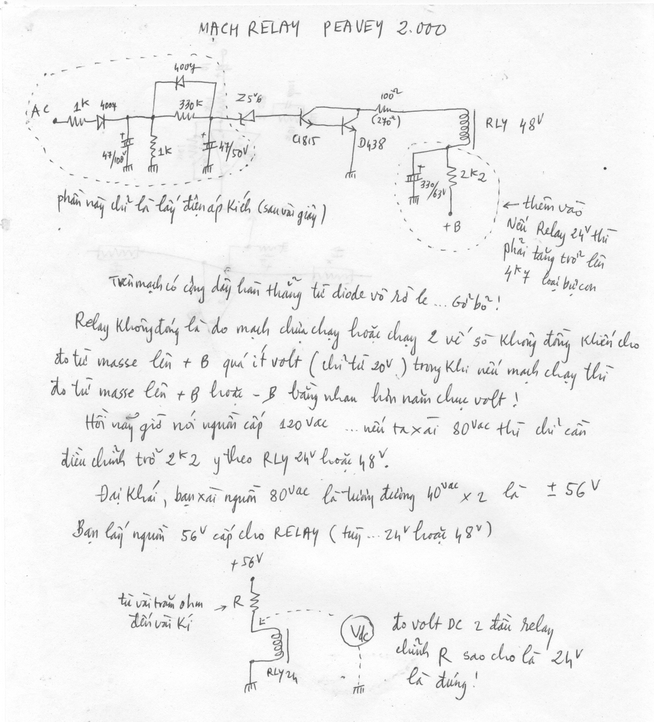 MẠCH RELAY PEAVEY 2.000
AC
1K
4007
47/100V
1K
4007
330K
47/50V
Z5V6
C1815
D438
100Ω
(270Ω)
RLY 48V
330/63V
2K2
+B
phần này chỉ là lấy điện áp kích (sau vài giây)
← thêm vào
Nếu Relay 24V thì
phải tăng trở lên
4K7 loại bự con
Trên mạch có cộng dây hàn thẳng từ diode vô rờ le ... Gỡ bỏ!
Relay không đóng là do mạch chưa chạy hoặc chạy 2 vế số không đồng khiến cho
đo từ masse lên +B quá ít volt (chỉ từ 20V) trong khi nếu mạch chạy thì
đo từ masse lên +B hoặc -B bằng nhau hơn năm chục volt!
Hồi nãy giờ nói nguồn cấp 120VAC ... nếu ta xài 80VAC thì chỉ cần
điều chỉnh trở 2K2 y theo RLY 24V hoặc 48V.
Đại khái, bạn xài nguồn 80VAC là tương đương 40VAC x 2 là ± 56V
Bạn lấy nguồn 56V cấp cho RELAY (tùy ... 24V hoặc 48V)
+56V
từ vài trăm ohm
đến vài Kí
→ R
RLY 24
Vdc
đo volt DC 2 đầu relay
chỉnh R sao cho là 24V
là đúng!